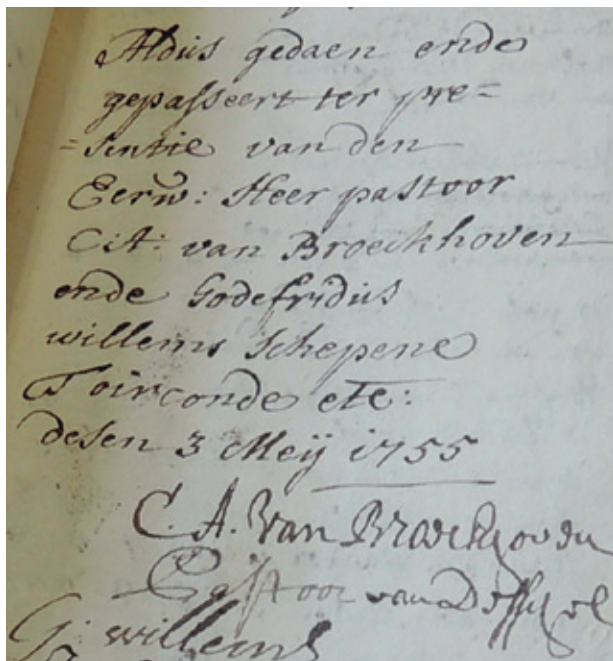 Aldus gedaen ende
gepasseert ter pre=
=sentie van den
Eerw: Heer pastoor
C:A: van Broeckhoven
ende Godefridus
willems Schepene
Toirconde etc:
desen 3 Meij 1755
C. A. Van Broeckhoven
Pastoor van Desschel
G: willems